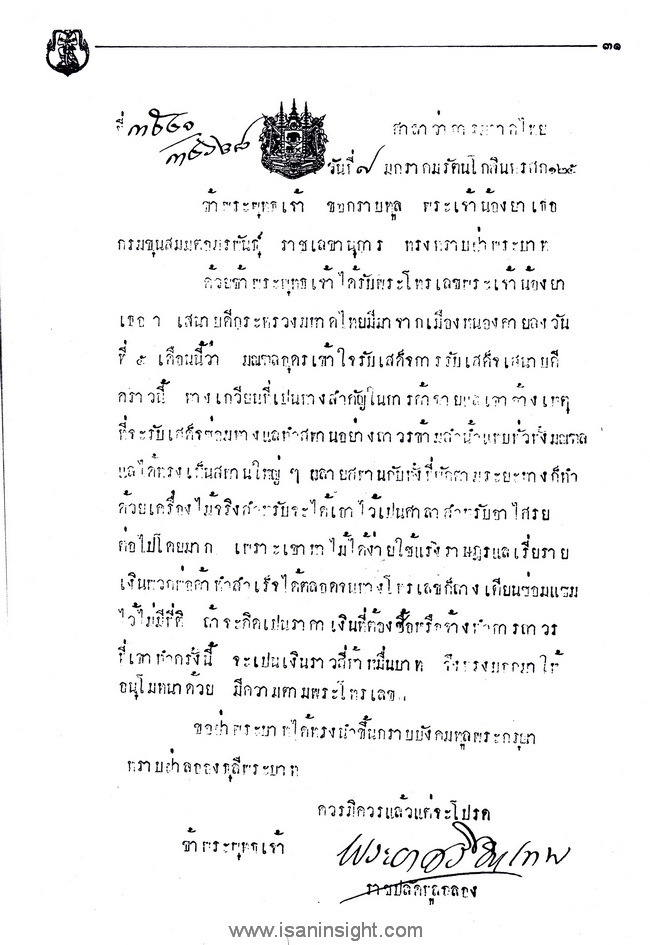 ๓๑
ที่
ศาลาว่าการมหาดไทย
วันที่ ๗ มกราคม รัตนโกสินทรศก ๑๒๕
ข้าพระพุทธเจ้า ขอกราบทูล พระเจ้าน้องยาเธอ
กรมขุนสมมตอมรพันธุ์ ราชเลขานุการ ทรงทราบฝ่าพระบาท
ด้วยข้าพระพุทธเจ้าได้รับพระโทรเลขพระเจ้าน้องยา
เธอ ฯ เสนาบดีกระทรวงมหาดไทยมีมาจากเมืองหนองคายลงวัน
ที่ ๕ เดือนนี้ว่า มณฑลอุดรเข้าใจรับเสด็จการรับเสด็จเสนาบดี
คราวนี้ ทางเกวียนที่เปนทางสำคัญในการค้าขายแลเขาอ้างเหตุ
ที่จะรับเสด็จซ่อมทางแลทำสพานอย่างถาวรข้ามลำน้ำแทบทั่วทั้งมณฑล
แลได้ทรงเห็นสพานใหญ่ ๆ หลายสพานกับทั้งที่พักตามระยะทางก็ทำ
ด้วยเครื่องไม้จริงสำหรับจะได้เอาไว้เปนศาลาสำหรับอาไศรย
ต่อไปโดยมาก เพราะเขาหาไม้ได้ง่ายใช้แรงราษฎรแลเรี่ยราย
เงินพวกพ่อค้าทำสำเร็จได้ตลอดจนทางโทรเลขก็ถางเตียนซ่อมแซม
ไว้ไม่มีที่ติ ถ้าจะคิดเปนราคาเงินที่ต้องซื้อหรือจ้างทำการถาวร
ที่เขาทำครั้งนี้ จะเปนเงินราวสี่ห้าหมื่นบาท จึงทรงบอกมาให้
อนุโมทนาด้วย มีความตามพระโทรเลข
ขอฝ่าพระบาทได้ทรงนำขึ้นกราบบังคมทูลพระกรุณา
ทราบฝ่าลอองธุลีพระบาท
ควรมิควรแล้วแต่จะโปรด
ข้าพระพุทธเจ้า
ราชปลัดทูลฉลอง
www.isaninsight.com